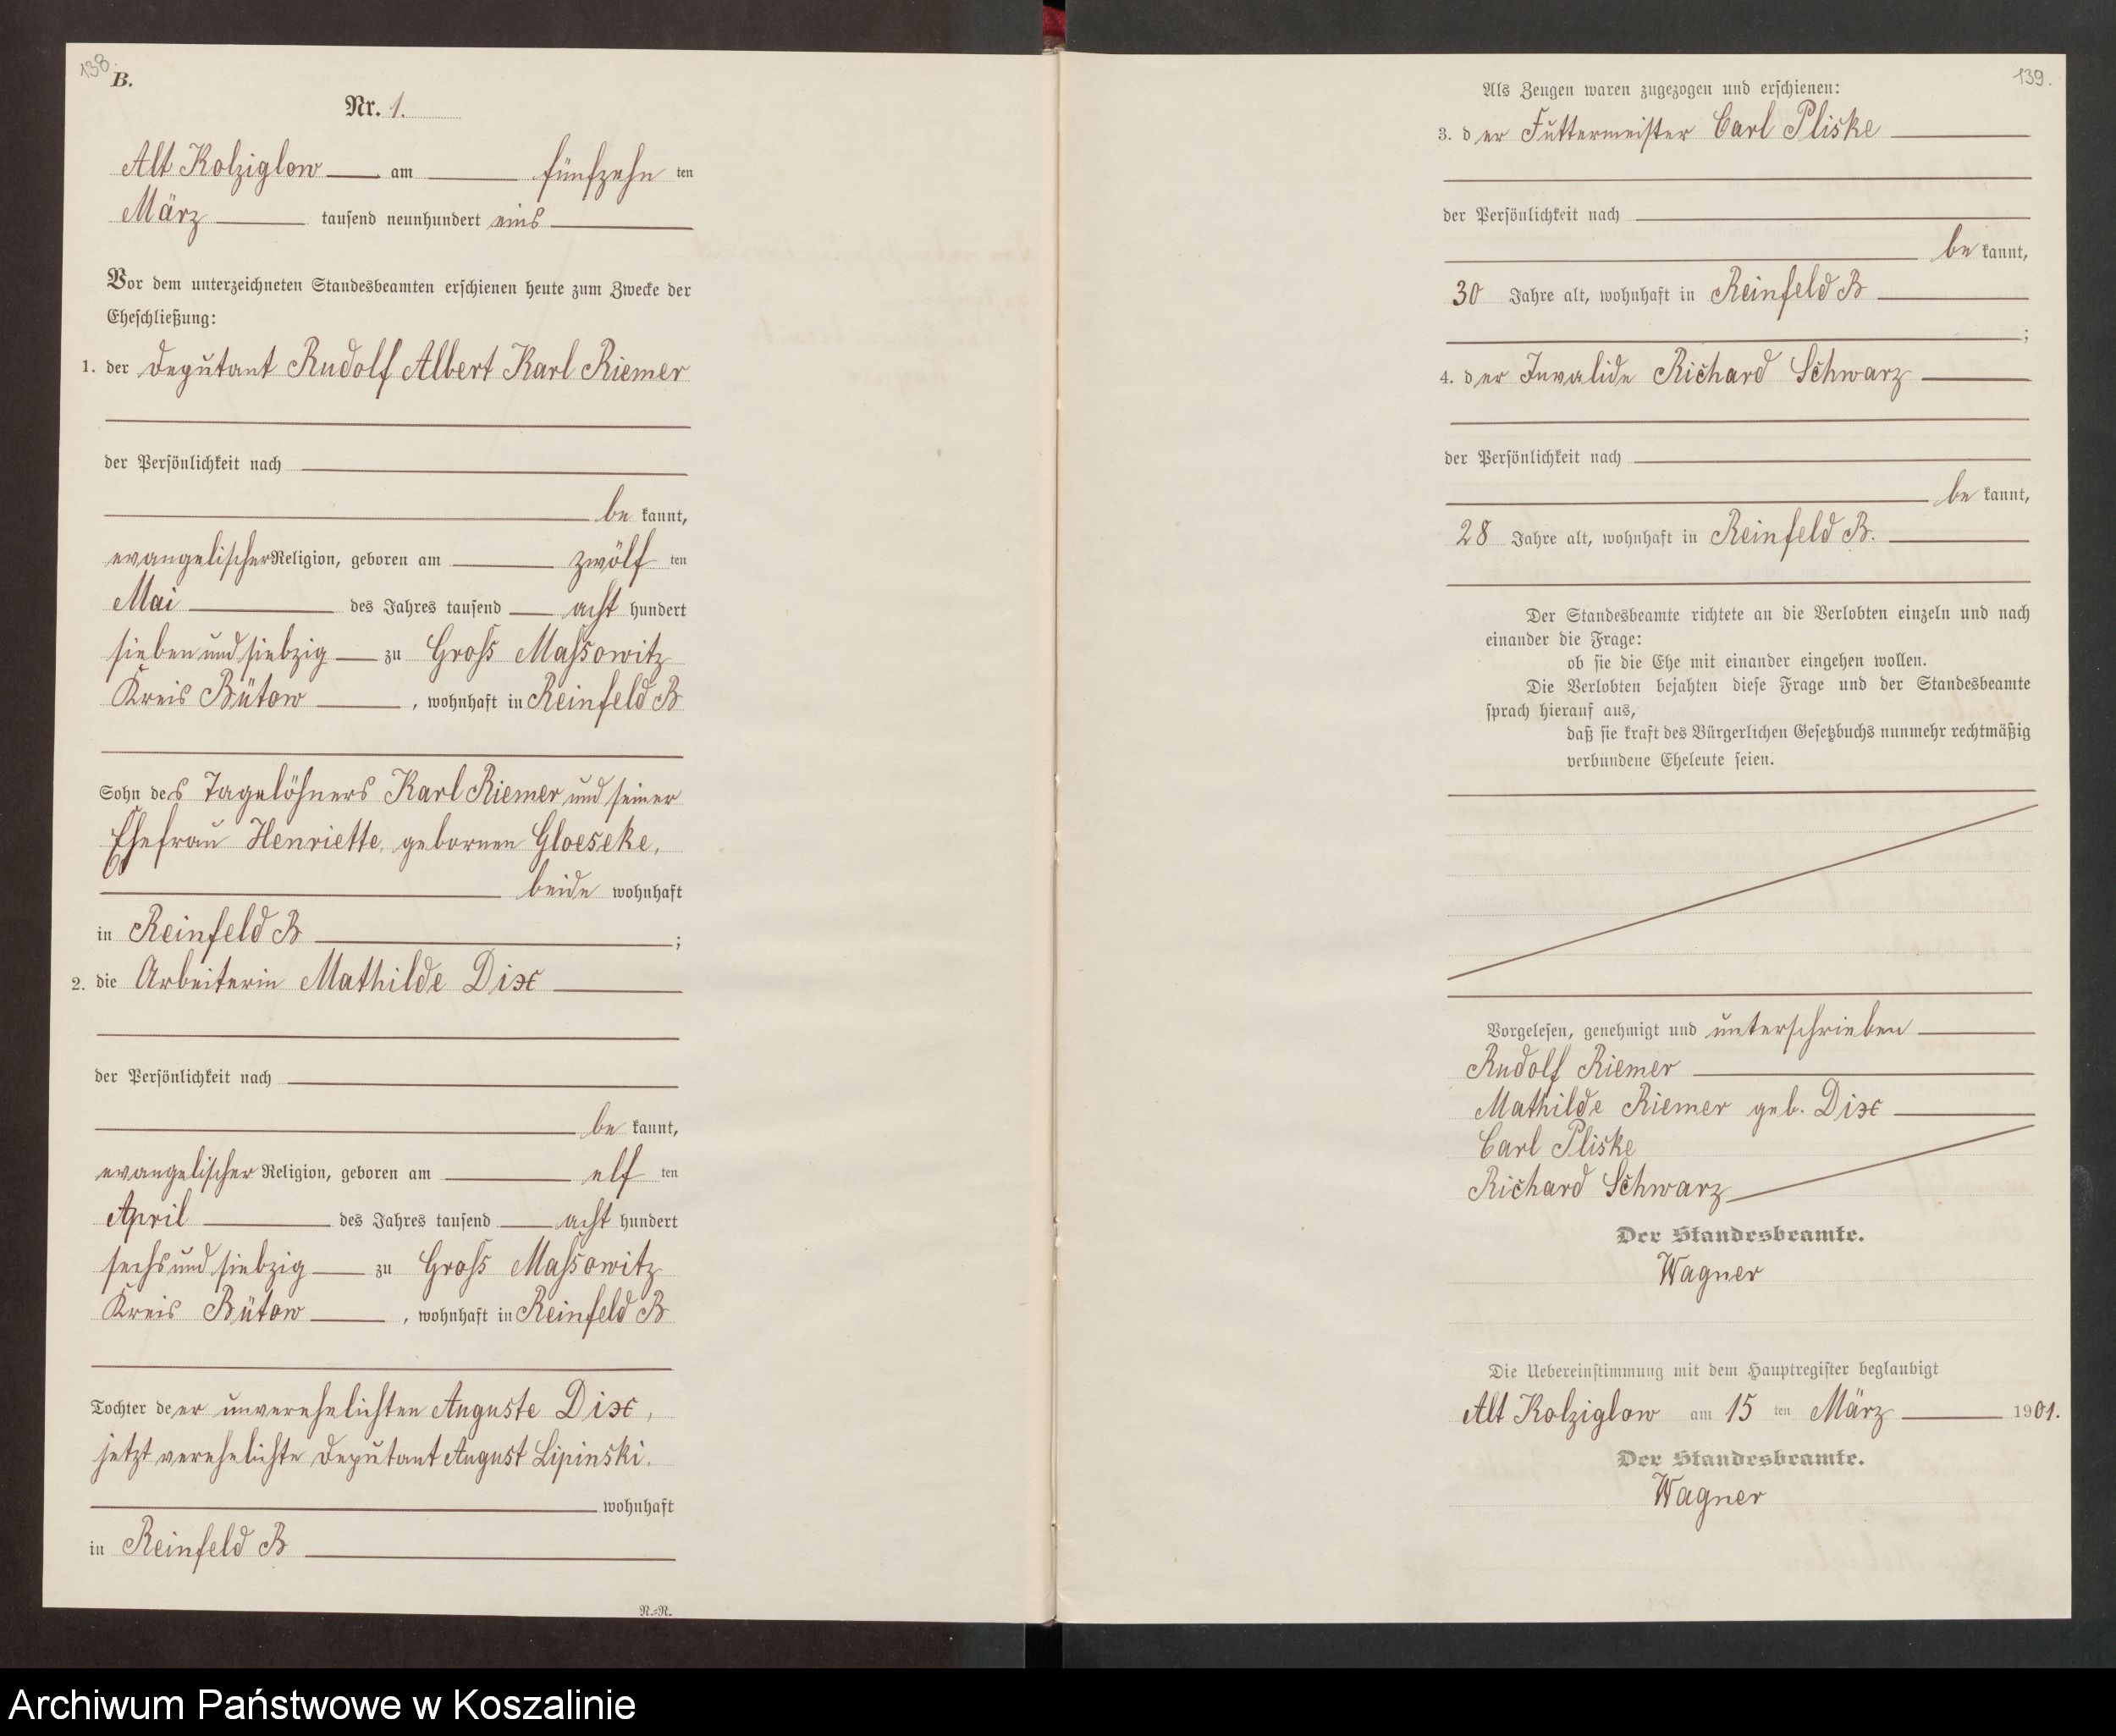 138.
B.
Nr. 1.
Alt Kolziglow am fünfzehn ten
März tausend neunhundert eins
Vor dem unterzeichneten Standesbeamten erschienen heute zum Zwecke der
Eheschließung:
1. der Deputant Rudolf Albert Karl Riemer
der Persönlichkeit nach
be kannt,
evangelischer Religion, geboren am zwölf ten
Mai des Jahres tausend acht hundert
sieben und siebzig zu Gross Massowitz
Kreis Bütow, wohnhaft in Reinfeld B
Sohn des Tagelöhners Karl Riemer und seiner
Ehefrau Henriette, gebornen Gloeseke,
beide wohnhaft
in Reinfeld B ;
2. die Arbeiterin Mathilde Dix
der Persönlichkeit nach
be kannt,
evangelischer Religion, geboren am elf ten
April des Jahres tausend acht hundert
sechs und siebzig zu Gross Massowitz
Kreis Bütow, wohnhaft in Reinfeld B
Tochter de er unverehelichten Auguste Dix,
jetzt verehelichte Deputant August Lipinski.
wohnhaft
in Reinfeld B
N.=N.
139.
Als Zeugen waren zugezogen und erschienen:
3. d er Futtermeister Carl Pliske
der Persönlichkeit nach
be kannt,
30 Jahre alt, wohnhaft in Reinfeld B
;
4. d er Invalide Richard Schwarz
der Persönlichkeit nach
be kannt,
28 Jahre alt, wohnhaft in Reinfeld B.
Der Standesbeamte richtete an die Verlobten einzeln und nach
einander die Frage:
ob sie die Ehe mit einander eingehen wollen.
Die Verlobten bejahten diese Frage und der Standesbeamte
sprach hierauf aus,
daß sie kraft des Bürgerlichen Gesetzbuchs nunmehr rechtmäßig
verbundene Eheleute seien.
Vorgelesen, genehmigt und unterschrieben
Rudolf Riemer
Mathilde Riemer geb. Dix
Carl Pliske
Richard Schwarz
Der Standesbeamte.
Wagner
Die Uebereinstimmung mit dem Hauptregister beglaubigt
Alt Kolziglow am 15 ten März 1901.
Der Standesbeamte.
Wagner
Archiwum Państwowe w Koszalinie